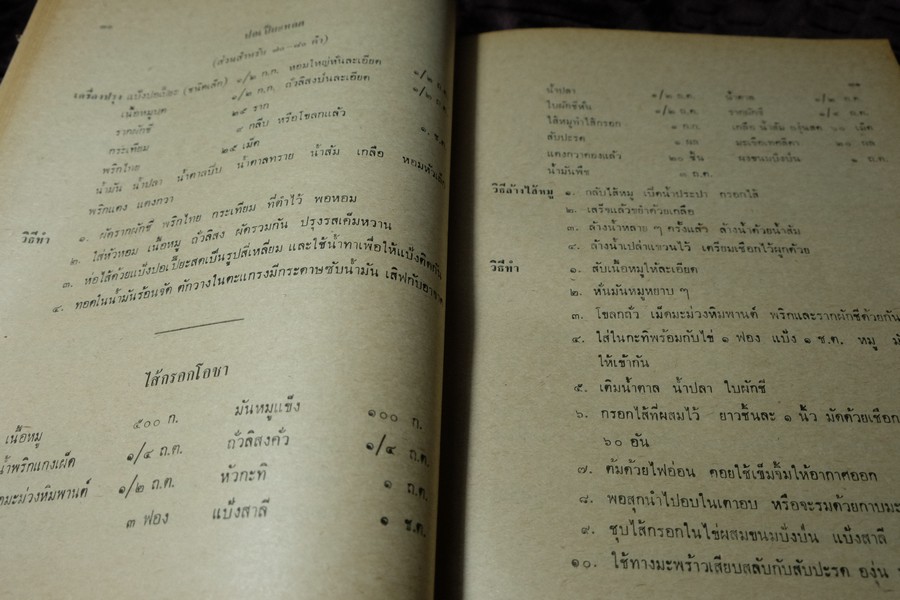 ๓๐
ปอเปี๊ยะทอด
(ส่วนสำหรับ ๗๐-๘๐ ตัว)
เครื่องปรุง แป้งปอเปี๊ยะ (ชนิดเล็ก) ๑/๒ ก.ก. หอมใหญ่หั่นละเอียด ๑/๒ ถ.ต.
เนื้อหมูบด ๑/๒ ก.ก. ถั่วลิสงป่นละเอียด ๑/๒ ถ.ต.
รากผักชี ๒๕ ราก
กระเทียม ๙ กลีบ หรือโขลกแล้ว ๑ ช.ต.
พริกไทย ๒๕ เม็ด
น้ำมัน น้ำปลา น้ำตาลปีบ น้ำตาลทราย น้ำส้ม เกลือ หอมหัวเล็ก
พริกแดง แตงกวา
วิธีทำ ๑. ผัดรากผักชี พริกไทย กระเทียม ที่ตำไว้ พอหอม
๒. ใส่หัวหอม เนื้อหมู ถั่วลิสง ผัดรวมกัน ปรุงรสเค็มหวาน
๓. ห่อไส้ด้วยแป้งปอเปี๊ยะสดเป็นรูปสี่เหลี่ยม และใช้น้ำทาเพื่อให้แป้งติดกัน
๔. ทอดในน้ำมันร้อนจัด ตักวางในตะแกรงมีกระดาษซับน้ำมัน เสิฟกับอาจาด
ไส้กรอกโอชา
เนื้อหมู ๕๐๐ ก. มันหมูแข็ง ๑๐๐ ก.
น้ำพริกแกงเผ็ด ๑/๔ ถ.ต. ถั่วลิสงคั่ว ๑/๔ ถ.ต.
มะม่วงหิมพานต์ ๑/๒ ถ.ต. หัวกะทิ ๑ ถ.ต.
๓ ฟอง แป้งสาลี ๑ ช.ต.
๓๑
น้ำปลา ๑/๒ ถ.ต. น้ำตาล ๑/๒ ถ.ต.
ใบผักชีหั่น ๑/๒ ถ.ต. รากผักชี ๑/๔ ถ.ต.
ไส้หมูทำไส้กรอก ๑ ก.ก. เกลือ น้ำส้ม องุ่นสด ๖๐ เม็ด
สับปะรด ๑ ผล มะเขือเทศสีดา ๒๐ ผล
แตงกวาดองแล้ว ๒๐ ชิ้น ผงขนมปังป่น ๑ ถ.ต.
น้ำมันพืช ๓ ถ.ต.
วิธีล้างไส้หมู ๑. กลับไส้หมู เปิดน้ำประปา กรอกไส้
๒. เสร็จแล้วขยำด้วยเกลือ
๓. ล้างน้ำหลาย ๆ ครั้งแล้ว ล้างน้ำด้วยน้ำส้ม
๔. ล้างน้ำเปล่าแขวนไว้ เตรียมเชือกไว้ผูกด้วย
วิธีทำ ๑. สับเนื้อหมูให้ละเอียด
๒. หั่นมันหมูหยาบ ๆ
๓. โขลกถั่ว เม็ดมะม่วงหิมพานต์ พริกและรากผักชีด้วยกัน
๔. ใส่ในกะทิพร้อมกับไข่ ๑ ฟอง แป้ง ๑ ช.ต. หมู
ให้เข้ากัน
๕. เติมน้ำตาล น้ำปลา ใบผักชี
๖. กรอกไส้ที่ผสมไว้ ยาวชิ้นละ ๑ นิ้ว มัดด้วยเชือก
๖๐ อัน
๗. ต้มด้วยไฟอ่อน คอยใช้เข็มจิ้มให้อากาศออก
๘. พอสุกนำไปอบในเตาอบ หรือจะรมด้วยกาบมะ
๙. ชุบไส้กรอกในไข่ผสมขนมปังป่น แป้งสาลี
๑๐. ใช้ทางมะพร้าวเสียบสลับกับสับปะรด องุ่น